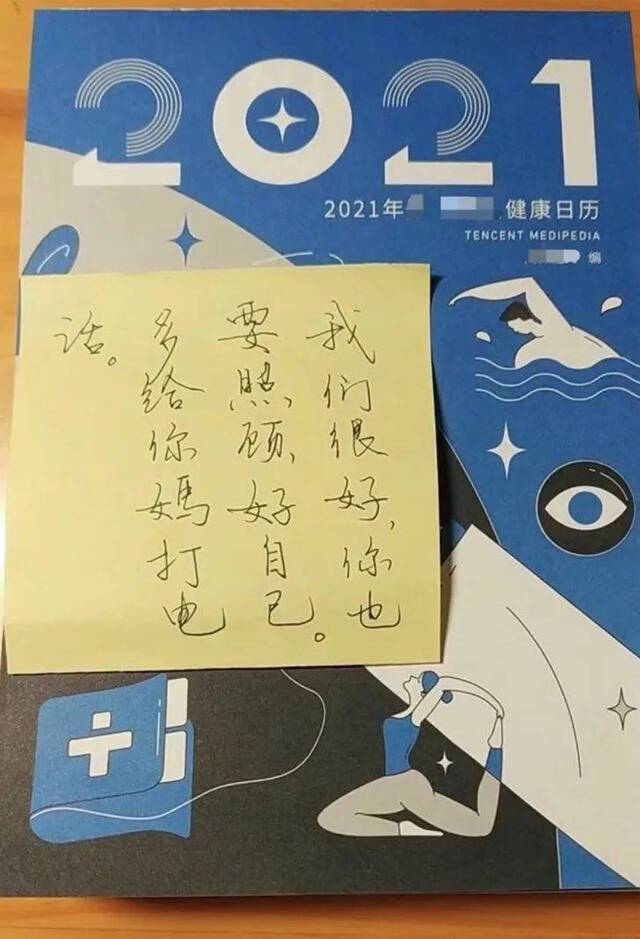 2021
2021年 健康日历
TENCENT MEDIPEDIA
编
我们很好,你也
要照顾好自己。
多给你媽打电
话。